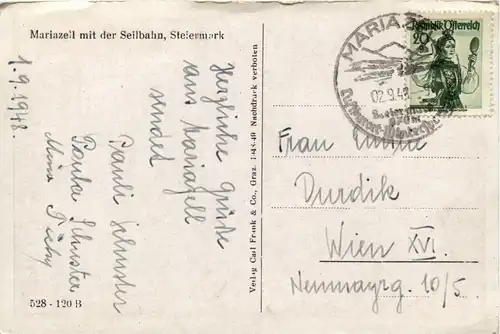 Mariazell mit der Seilbahn, Steiermark
1.9.1948.
Herzliche Grüße
aus Mariazell
sendet
Pauli Schuster
Paula Schuster
528 - 120 B
Verlag Carl Frank & Co., Graz. 1948-49 Nachdruck verboten
MARIAZ
02.9.48
Republik Österreich
20
Frau
Durdik
Wien XVI.
Neumayrg. 10/5.